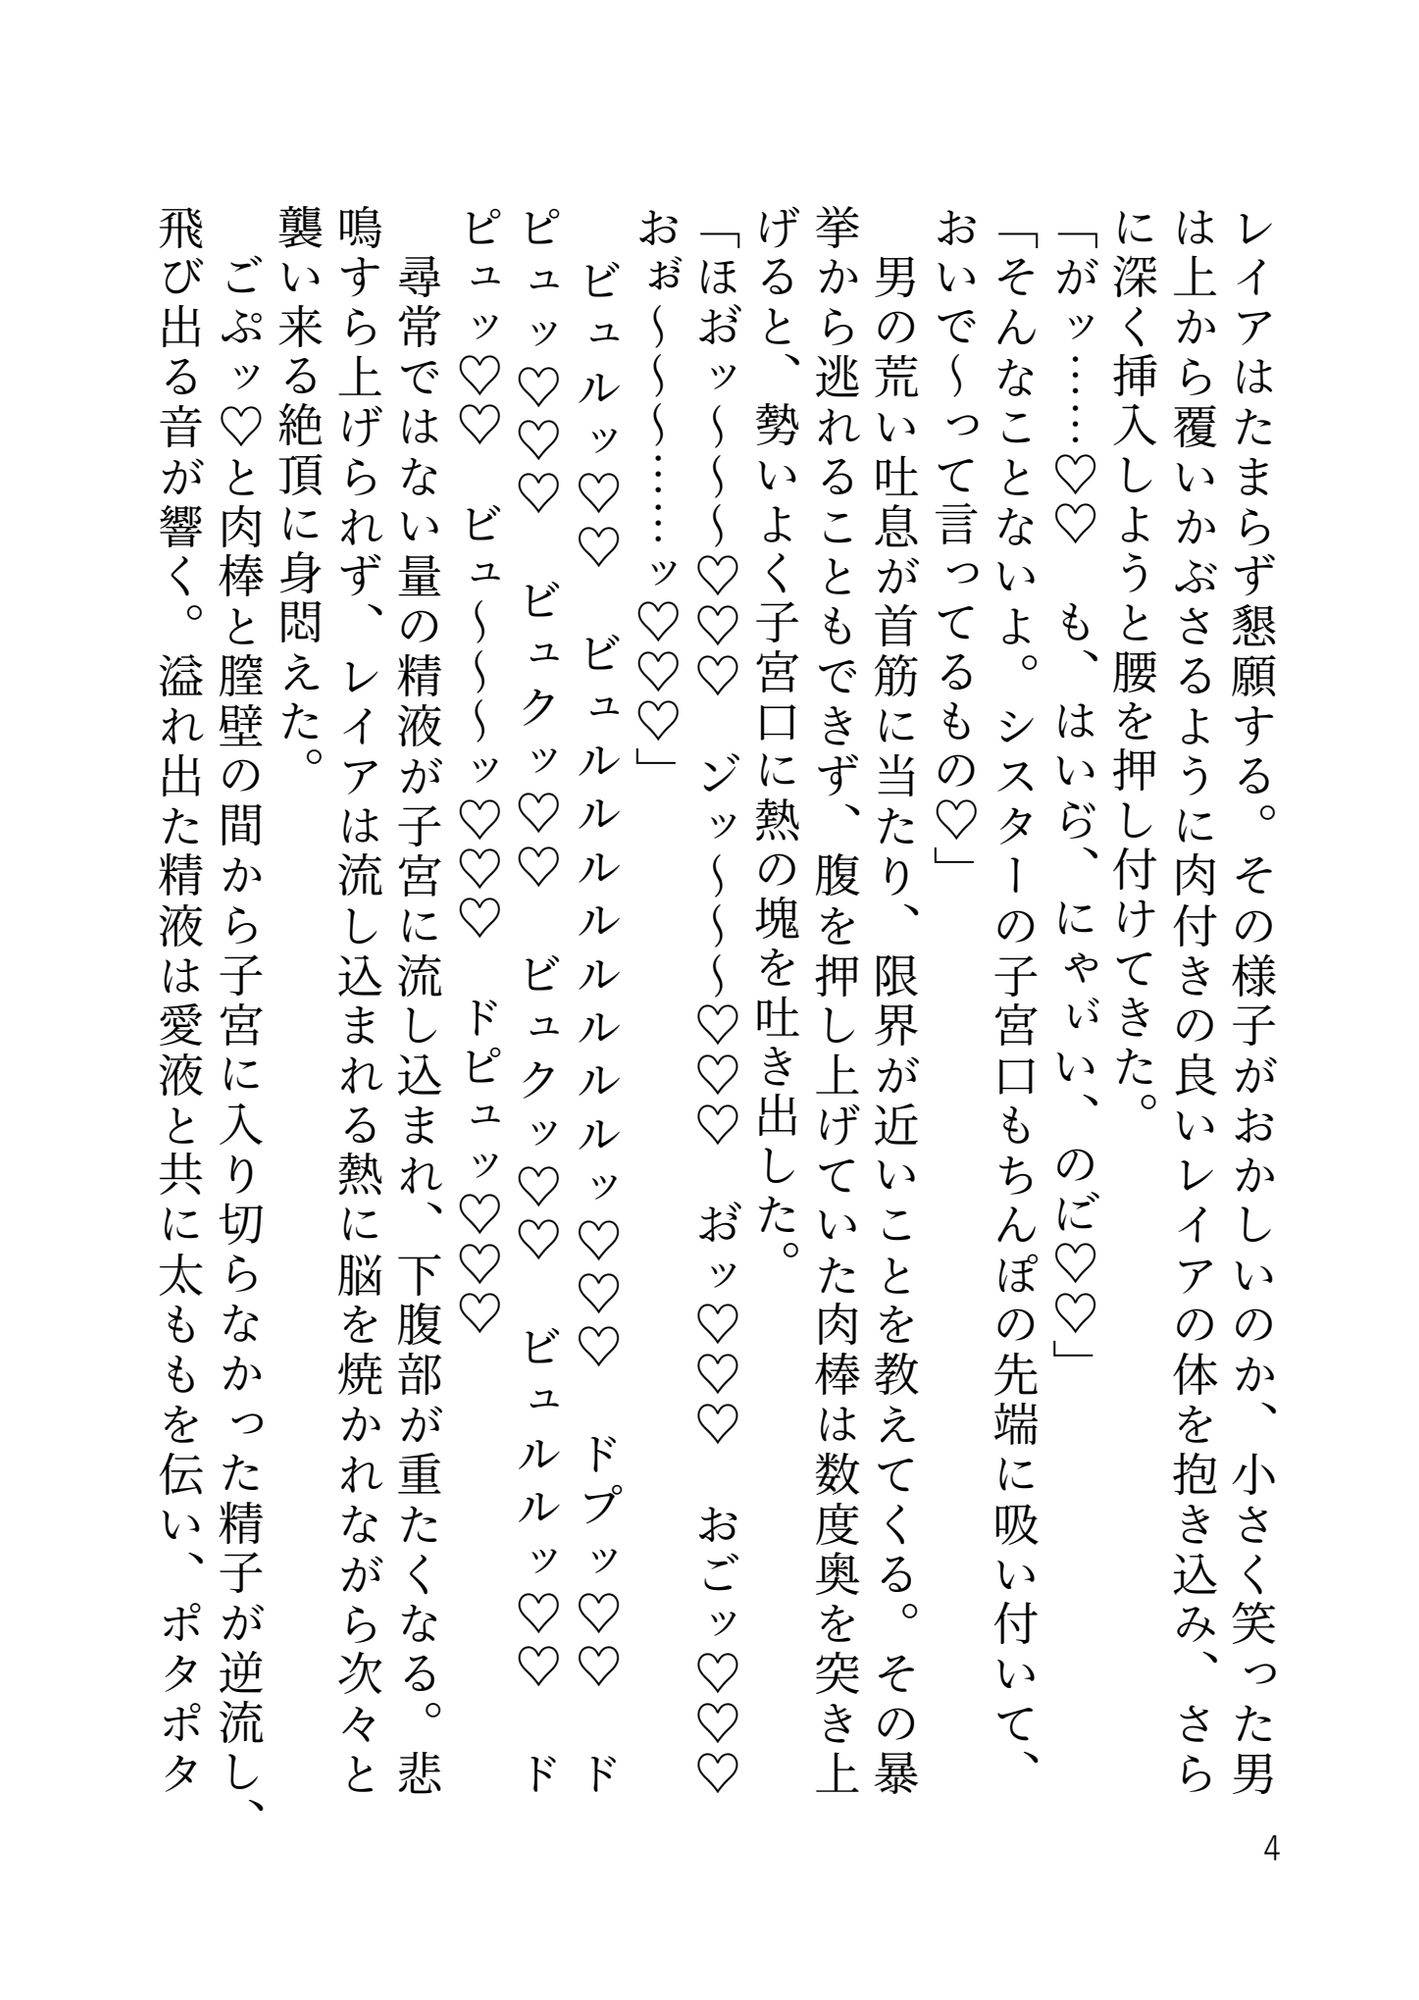 レイアはたまらず懇願する。その様子がおかしいのか、小さく笑った男
は上から覆いかぶさるように肉付きの良いレイアの体を抱き込み、さら
に深く挿入しようと腰を押し付けてきた。
「がッ……♡♡　も、はいら゙、にゃい゙い、のに゙♡♡」
「そんなことないよ。シスターの子宮口もちんぽの先端に吸い付いて、
おいで～って言ってるもの♡」
　男の荒い吐息が首筋に当たり、限界が近いことを教えてくる。その暴
挙から逃れることもできず、腹を押し上げていた肉棒は数度奥を突き上
げると、勢いよく子宮口に熱の塊を吐き出した。
「ほお゙ッ～～～♡♡♡　ジッ～～～♡♡♡　お゙ッ♡♡♡　おごッ♡♡♡
おぉ゙～～～……ッ♡♡♡」
　ビュルッ♡♡　ビュルルルルルルルルッ♡♡♡　ドプッ♡♡　ド
ピュッ♡♡♡　ビュクッ♡♡　ビュクッ♡♡　ビュルルッ♡♡　ド
ピュッ♡♡　ビュ～～～ッ♡♡♡　ドピュッ♡♡♡
　尋常ではない量の精液が子宮に流し込まれ、下腹部が重たくなる。悲
鳴すら上げられず、レイアは流し込まれる熱に脳を焼かれながら次々と
襲い来る絶頂に身悶えた。
　ごぷッ♡と肉棒と膣壁の間から子宮に入り切らなかった精子が逆流し、
飛び出る音が響く。溢れ出た精液は愛液と共に太ももを伝い、ポタポタ
4